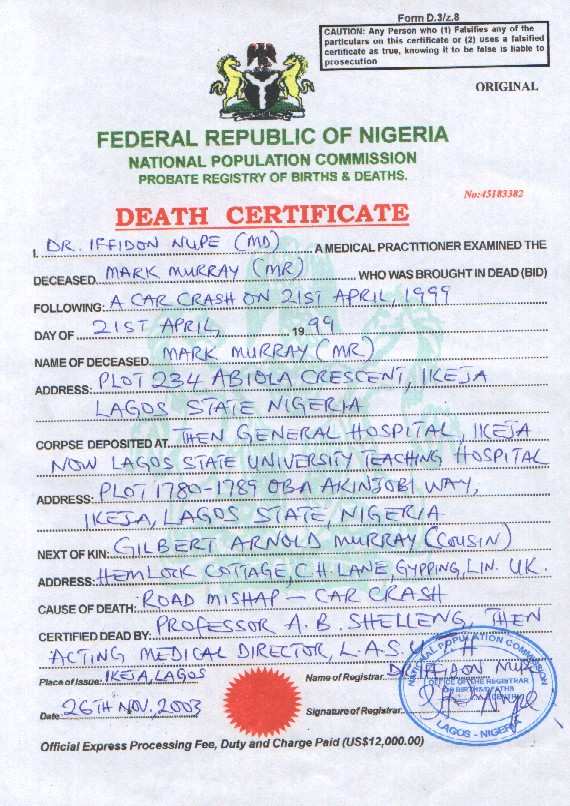 Form D.3/z.8
CAUTION: Any Person who (1) Falsifies any of the
particulars on this certificate or (2) uses a falsified
certificate as true, knowing it to be false is liable to
prosecution
ORIGINAL
FEDERAL REPUBLIC OF NIGERIA
NATIONAL POPULATION COMMISSION
PROBATE REGISTRY OF BIRTHS & DEATHS.
No:45183382
DEATH CERTIFICATE
I. DR. IFFIDON NUPE (MD) A MEDICAL PRACTITIONER EXAMINED THE
DECEASED MARK MURRAY (MR) WHO WAS BROUGHT IN DEAD (BID)
FOLLOWING: A CAR CRASH ON 21ST APRIL, 1999
DAY OF 21ST APRIL, 1999
NAME OF DECEASED MARK MURRAY (MR)
ADDRESS: PLOT 234 ABIOLA CRESCENT, IKEJA
LAGOS STATE NIGERIA
CORPSE DEPOSITED AT THEN GENERAL HOSPITAL, IKEJA
NOW LAGOS STATE UNIVERSITY TEACHING HOSPITAL
ADDRESS: PLOT 1780-1789 OBA AKINJOBI WAY,
IKEJA, LAGOS STATE, NIGERIA
NEXT OF KIN: GILBERT ARNOLD MURRAY (COUSIN)
ADDRESS: HEMLOCK COTTAGE, CH LANE GYPPING, LIN. UK.
CAUSE OF DEATH: ROAD MISHAP - CAR CRASH
CERTIFIED DEAD BY: PROFESSOR A. B. SHELLENG, THEN
ACTING MEDICAL DIRECTOR, L.A.S.U.T.H
Place of Issue: IKEJA, LAGOS
Name of Registrar DR. IFFIDON NUPE
Date 26TH NOV, 2003
Signature of Registrar
NATIONAL POPULATION COMMISSION
OFFICE OF THE REGISTRAR
OF BIRTHS/DEATHS
LAGOS - NIGERIA
Official Express Processing Fee, Duty and Charge Paid (US$12,000.00)